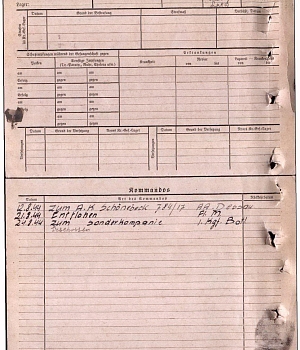 Lager:
Datum
Grund der Bestrafung
Strafmaß
Verbüßt, Datum
Schutzimpfungen während der Gefangenschaft gegen
Erkrankungen
Pocken
Sonstige Impfungen
(Ty. Paratyp., Ruhr, Cholera usw.)
Krankheit
Revier
Lazarett
am
am
gegen
Erfolg
am
gegen
am
am
gegen
Erfolg
am
gegen
am
am
gegen
Erfolg
am
gegen
Datum
Grund der Versetzung
Neues Kr.-Gef.-Lager
Datum
Grund der Versetzung
Neues Kr.-Gef.-Lager
Kommandos
Datum
Art des Kommandos
Rückkehrdatum
12.8.44 Zum A.K. Schönebeck 784/17 AA. Dessau
21.8.44 Entflohen Pl. M.
24.8.44 Zum Sonderkompanie 1. Kgf. Batl